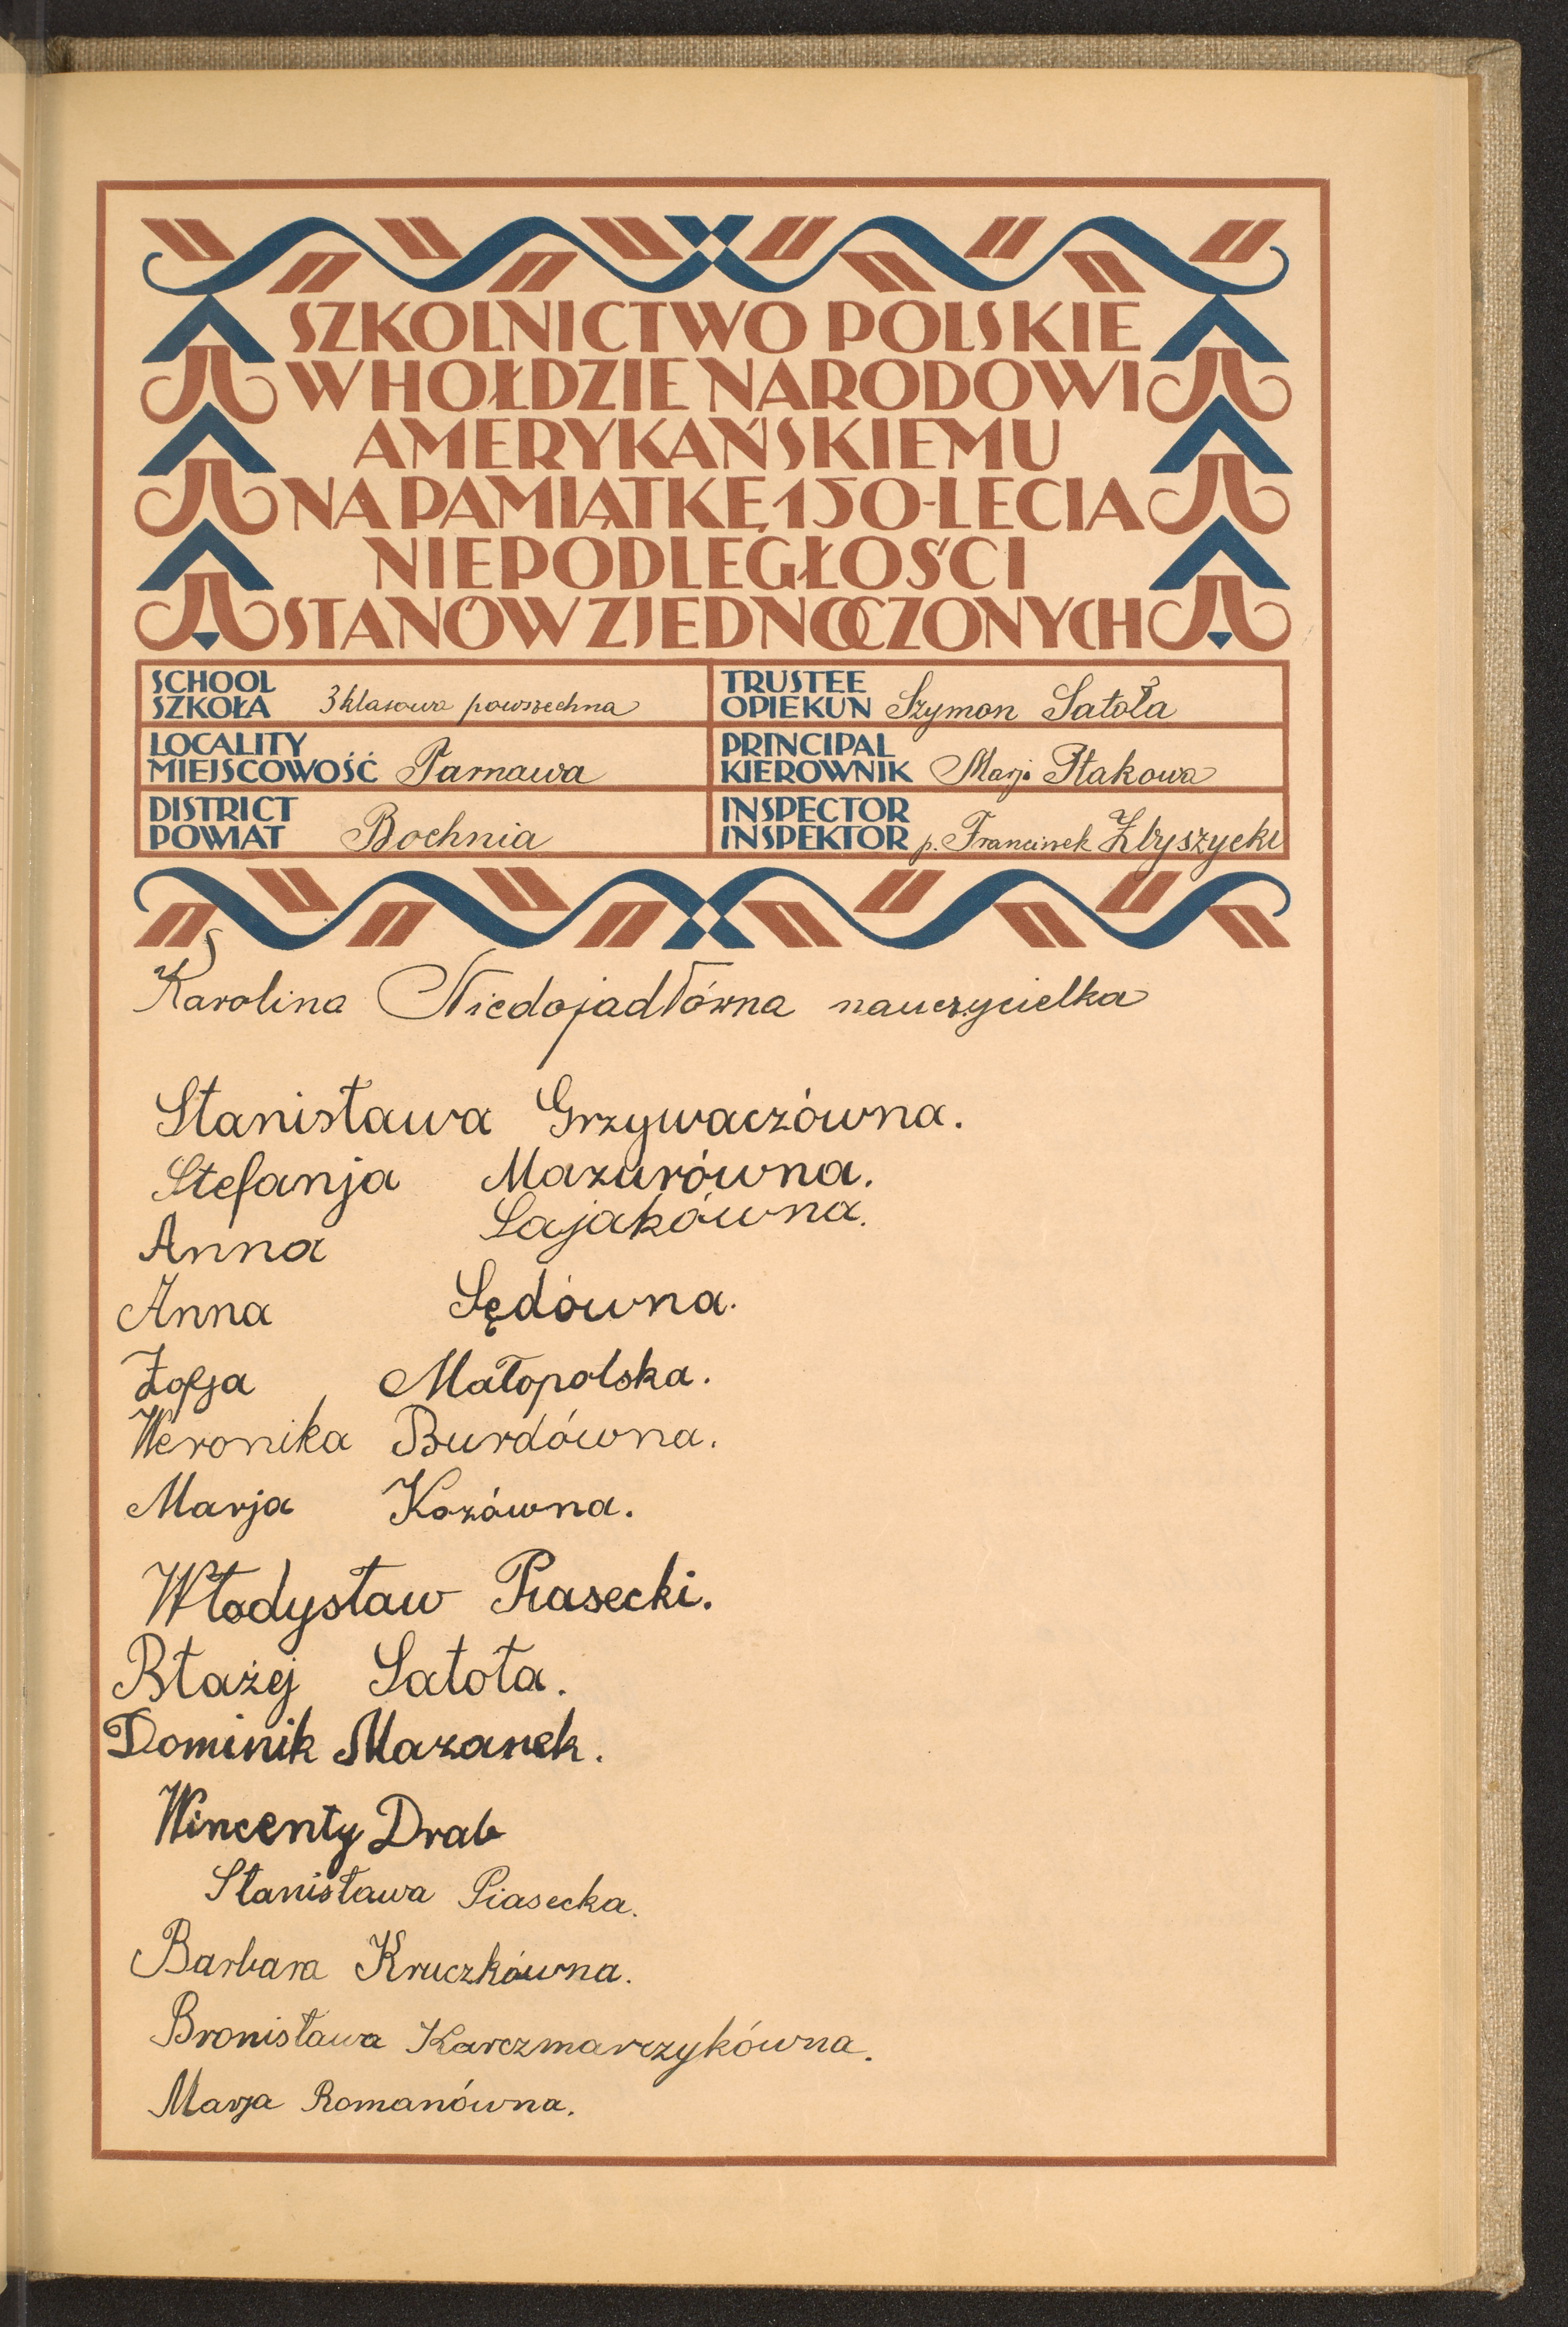 SZKOLNICTWO POLSKIE
W HOŁDZIE NARODOWI
AMERYKAŃSKIEMU
NA PAMIĄTKĘ 150-LECIA
NIEPODLEGŁOŚCI
STANÓW ZJEDNOCZONYCH
SCHOOL
SZKOŁA 3 klasowa powszechna
TRUSTEE
OPIEKUN Szymon Satoła
LOCALITY
MIEJSCOWOŚĆ Tarnawa
PRINCIPAL
KIEROWNIK Marja Ptakowa
DISTRICT
POWIAT Bochnia
INSPECTOR
INSPEKTOR p. Franciszek Zbyszycki
Karolina Niedojadłówna nauczycielka
Stanisława Grzywaczówna.
Stefanja Mazurówna.
Anna Sajakówna.
Anna Sędówna.
Zofja Małopolska.
Weronika Burdówna.
Marja Kozówna.
Włodysław Piasecki.
Błażej Satoła.
Dominik Mazanek.
Wincenty Drab
Stanisława Piasecka.
Barbara Kruczkówna.
Bronisława Karczmarczykówna.
Marja Romanówna.